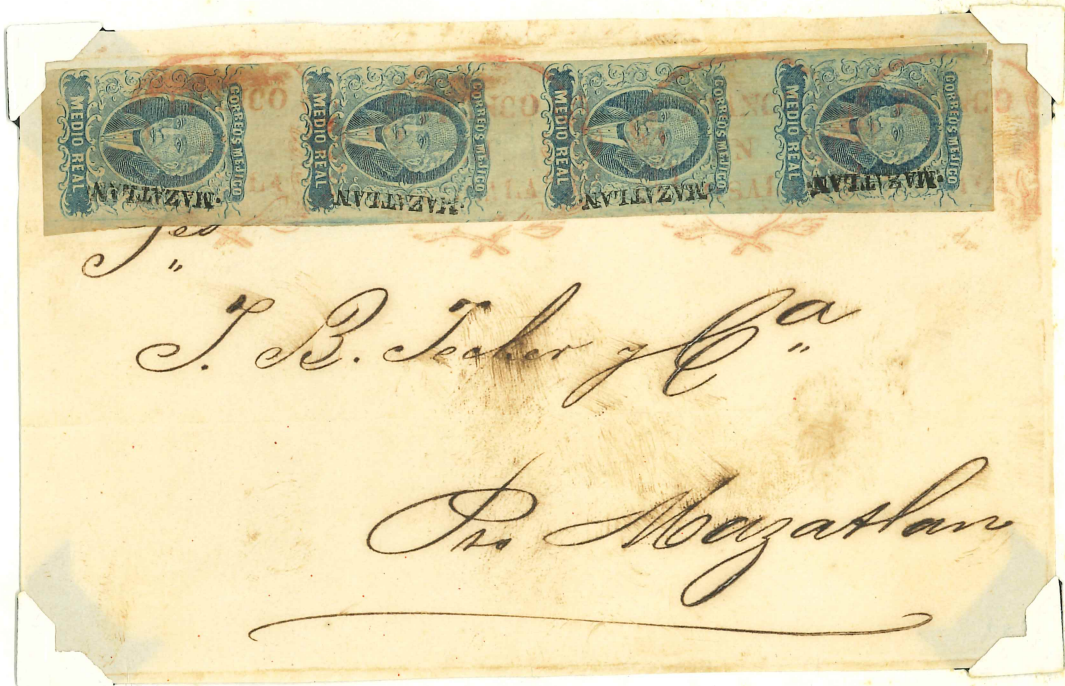 CORREOS MEJICO
MEDIO REAL
·MAZATLAN
CORREOS MEJICO
MEDIO REAL
·MAZATLAN
CORREOS MEJICO
MEDIO REAL
·MAZATLAN
CORREOS MEJICO
MEDIO REAL
·MAZATLAN
J. B. Jecker y Cª
Pto Mazatlan